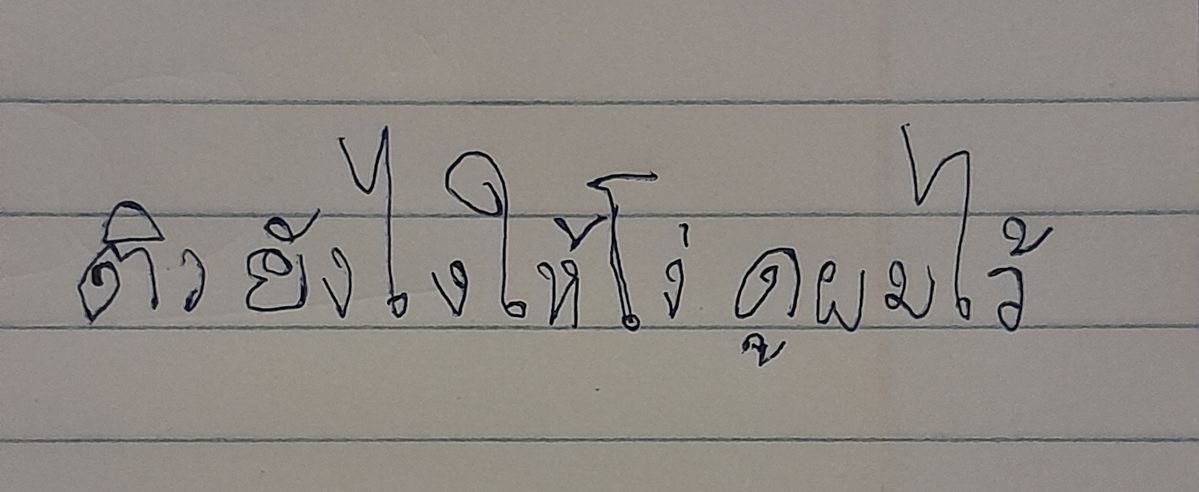 ติว ยังไงให้โง่ ดูผมไว้